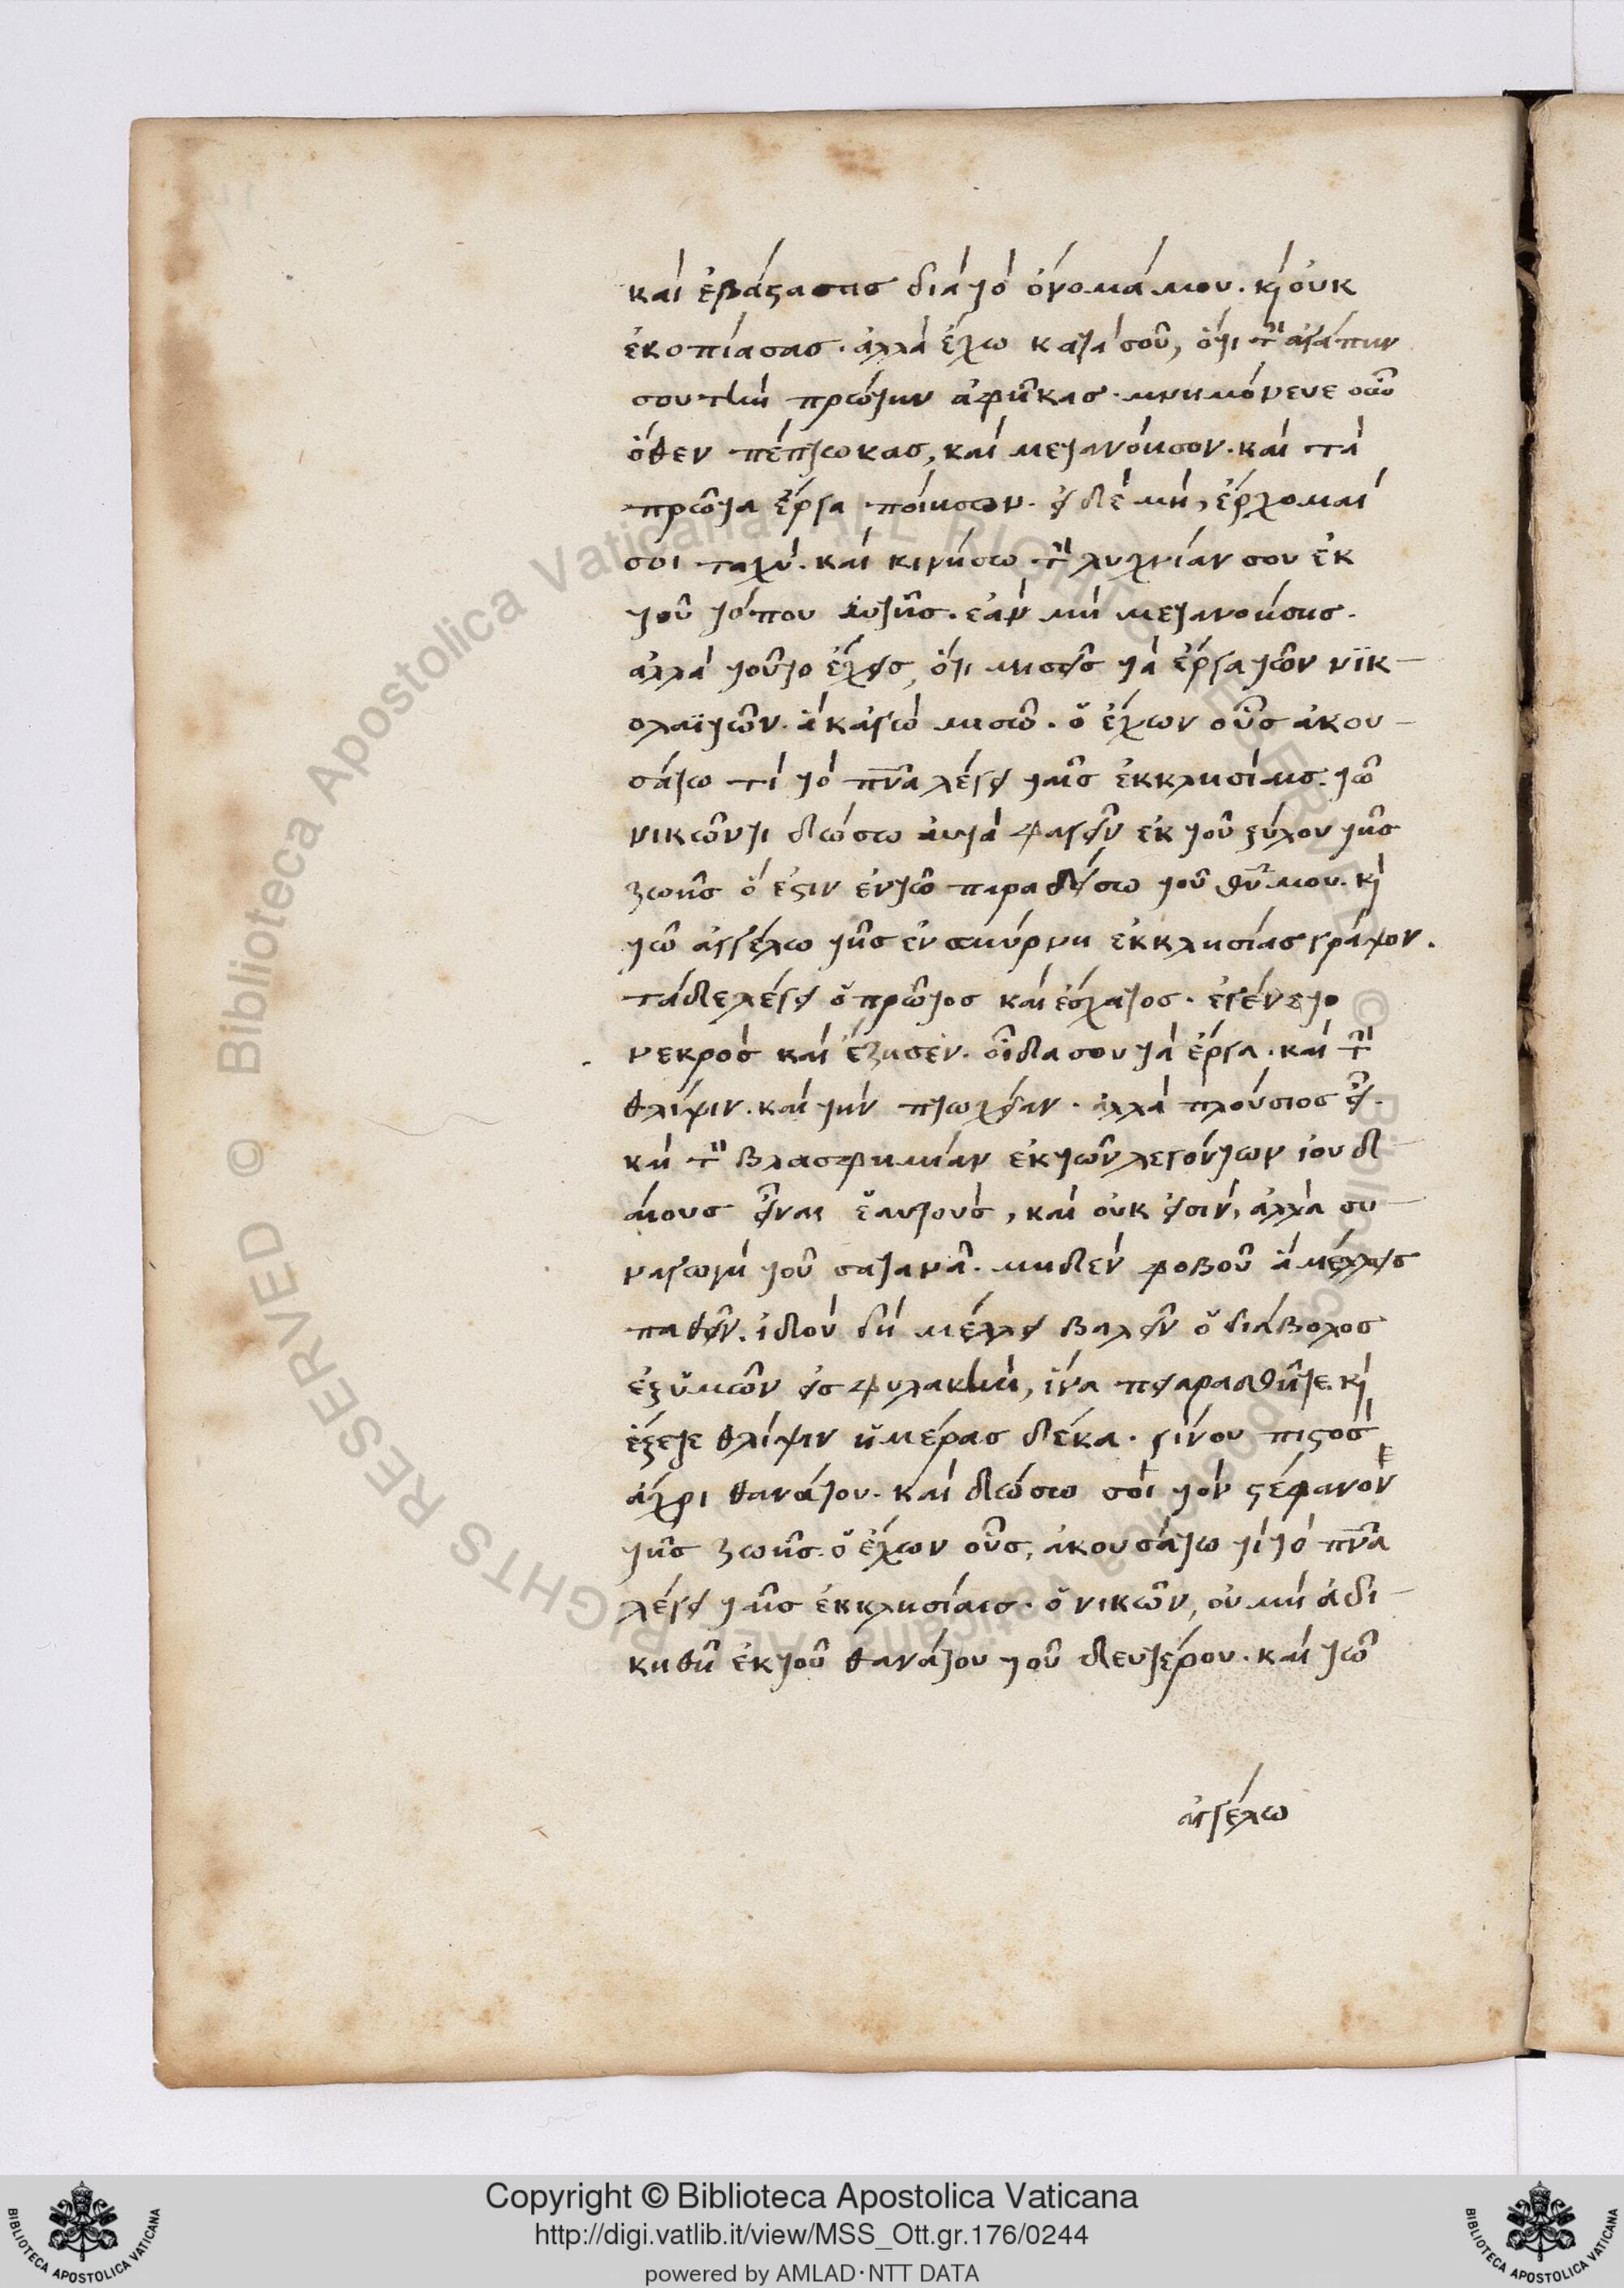 καὶ ἐβάϛασας διὰ τὸ ὄνομά μου. κ̀ οὐκ
ἐκοπίασας. ἀλλὰ ἔχω κατὰ σοῦ, ὅτι τὴν ἀγάπην
σου τὴν πρώτην ἀφῆκας. μνημόνευε οὖν
ὅθεν πέπτωκας, καὶ μετανόησον. καὶ τὰ
πρῶτα ἔργα ποίησον. εἰ δὲ μὴ, ἔρχομαί
σοι ταχύ. καὶ κινήσω τὴν λυχνίαν σου ἐκ
τοῦ τόπου αὐτῆς. ἐὰν μὴ μετανοήσης.
ἀλλὰ τοῦτο ἔχεις, ὅτι μισεῖς τὰ ἔργα τῶν νϊκ-
ολαϊτῶν. ἃ κἀγὼ μισῶ. ὁ ἔχων οὖς ἀκου-
σάτω τί τὸ πν̅α λέγει ταῖς ἐκκλησίαις. τῶ
νικῶντι δώσω αὐτὰ φαγεῖν ἐκ τοῦ ξύλου τῆς
ζωῆς ὅ ἐϛιν ἐν τῶ παραδείσω τοῦ θυ̅ μου. κ̀
τῶ ἀγγέλω τῆς ἐν σμύρνη ἐκκλησίας γράψον.
τάδε λέγει ὁ πρῶτος καὶ ἔσχατος. ἐγένετο
νεκρὸς καὶ ἔζησεν. οἶδα σου τὰ ἔργα. καὶ τὴν
θλίψιν. καὶ τὴν πτωχείαν. ἀλλὰ πλούσιος εἶ.
καὶ τὴν βλασφημίαν ἐκ τῶν λεγόντων ἰουδ
αίους εἶναι ἑαυτοὺς, καὶ οὐκ εἰσὶν, ἀλλὰ συ-
ναγωγὴ τοῦ σατανᾶ. μηδὲν φοβοῦ ἃ μέλλεις
παθεῖν. ἰδοὺ δὴ μέλλει βαλεῖν ὁ διάβολος
ἐξ ὑμῶν εἰς φυλακὴν, ἵνα πειρασθῆτε. κ̀
ἕξετε θλίψιν ἡμέρας δέκα. γίνου πιϛὸς
ἄχρι θανάτου. καὶ δώσω σοὶ τὸν ϛέφανον
τῆς ζωῆς. ὁ ἔχων οὖς, ἀκουσάτω τί τὸ πν̅α
λέγει ταῖς ἐκκλησίαις. ὁ νικῶν, οὐ μὴ ἀδι-
κηθῆ ἐκ τοῦ θανάτου τοῦ δευτέρου. καὶ τῶ
ἀγγέλω
© Biblioteca Apostolica Vaticana ALL RIGHTS RESERVED
Copyright © Biblioteca Apostolica Vaticana
http://digi.vatlib.it/view/MSS_Ott.gr.176/0244
powered by AMLAD·NTT DATA
BIBLIOTECA APOSTOLICA VATICANA
BIBLIOTECA APOSTOLICA VATICANA